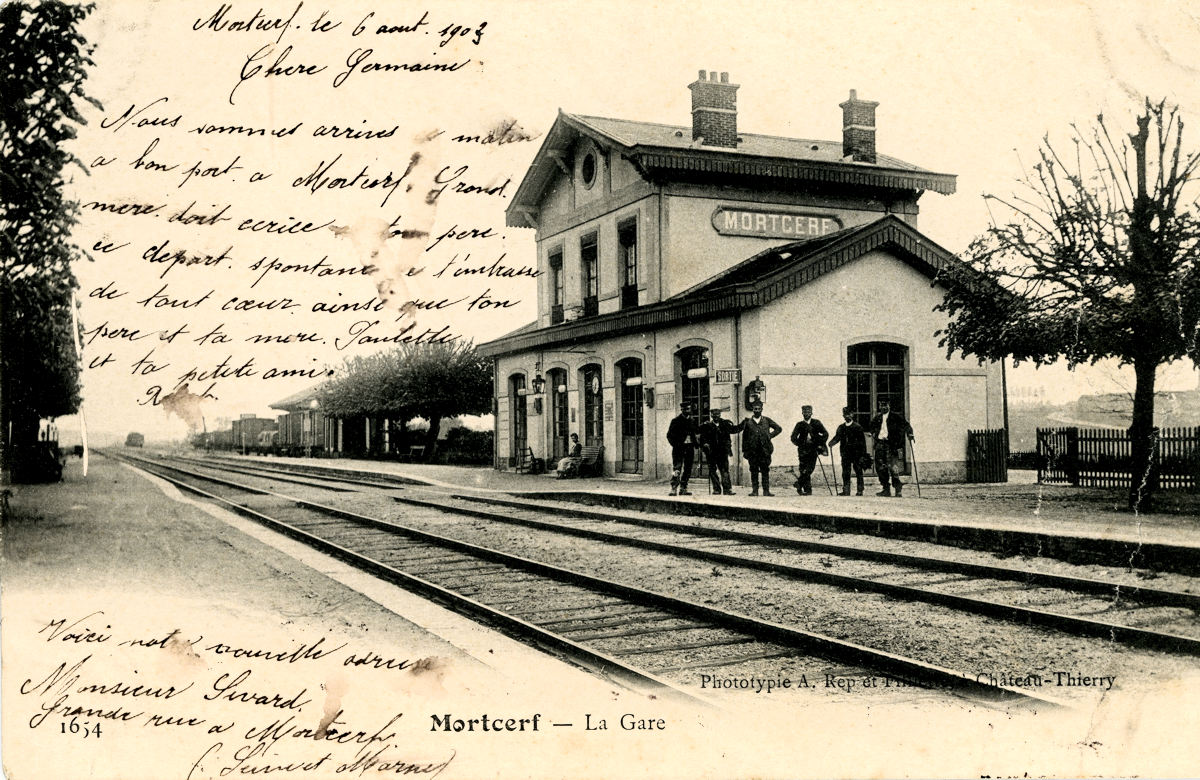 Mortcerf. le 6 aout. 1903
Chere Germaine
Nous sommes arrives matin
a bon port. a Mortcerf. Grand
mere. doit ecrire ton pere.
ce depart. spontané t'embrasse
de tout cœur. ainsi que ton
pere et ta mere. Paulette
et ta petite amie
MORTCERF
SORTIE
Voici notre nouvelle adresse
Monsieur Sivard.
Grande rue a Mortcerf.
(Seine et Marne)
Phototypie A. Rep et Château-Thierry
1654
Mortcerf — La Gare